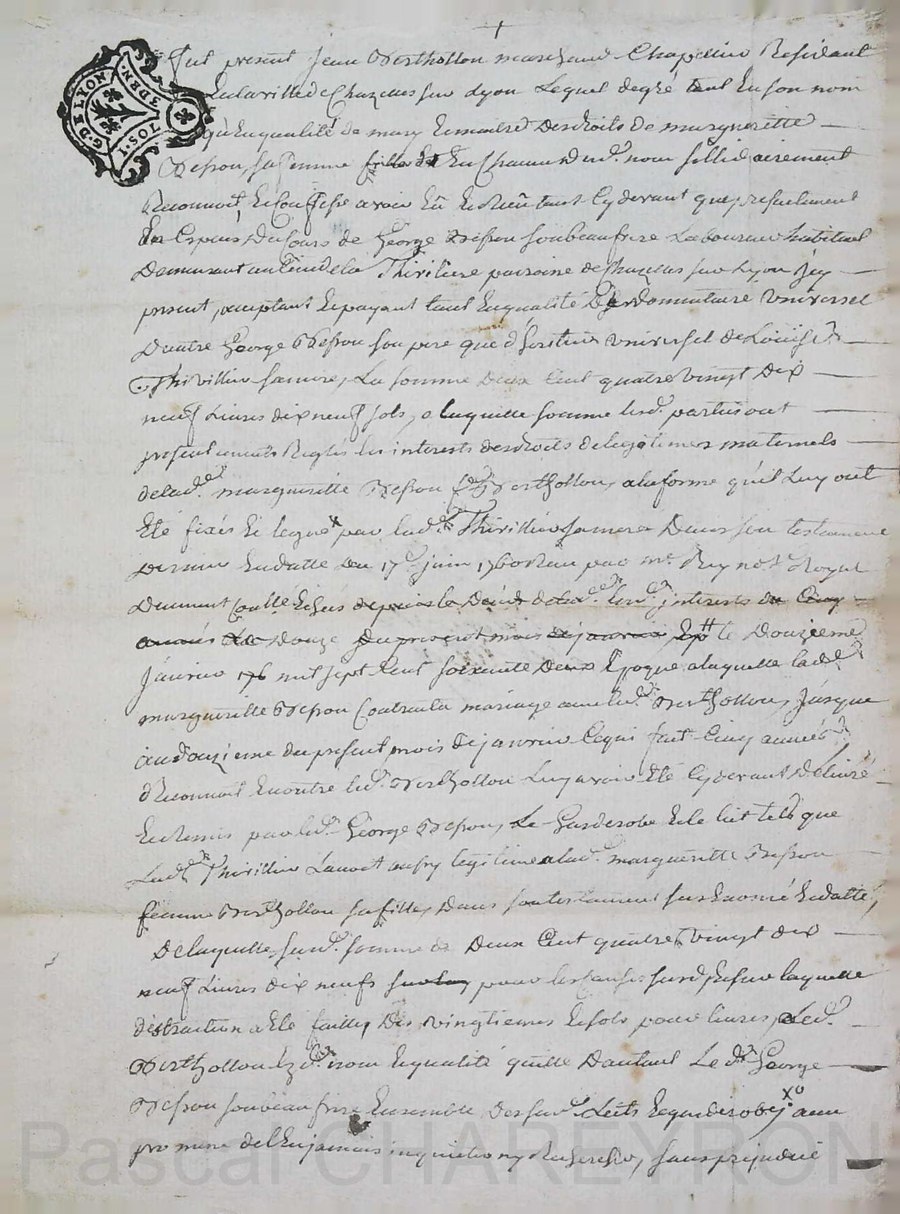 G. DE LYON
1. SOL 3 DEN.
Fut present Jean Berthollon marchand Chapellier Residant
En la ville de Chazelles sur Lyon Lequel de gré tant En son nom
qu'En qualité de mary Et maitre Des droits de margueritte
Besson, sa femme Et En Chacun Dud. nom sollidairement
Reconnoit Et Confesse avoir Eû Et Reçû tant Cy devant que presentement
En Especes Du Cours de George Besson son beau frere Laboureur habitant
Demeurant au lieu de la Thiviliere paroisse de Chazelles sur Lyon Icy
present, acceptant Et payant tant En qualité De donnataire Universel
D'autre George Besson son pere que d'heritier Universel de Louise
Thivillier sa mere, La somme Deux Cent quatre vingt Dix
neuf Livres dix neuf sols, a laquelle somme lesd. parties ont
presentement Reglés les interests des droits de legitimes maternels
de lad. margueritte Besson f. Berthollon, a la forme qu'il Luy ont
Eté fixés Et legué par lad. Thivillier sa mere Dans son testament
En datte du 17e juin 1760 Reçu par me Reynot Royal
Deument Conllé Echus depuis le lesd. interests de Cinq
années Douze Du present mois de janvier le Douzieme
Janvier 176 mil sept Cent soixante Deux Epoque a laquelle lad.
marguerite Besson Contracta mariage avec led. Berthollon, Jusque
au Douzieme du present mois de janvier Ce qui fait Cinq années
Reconnoit Encontre led. Berthollon Luy avoir Eté Cy devant Delivré
Et Remis par led. George Besson, Le Garderobe Et le lit tels que
Lad. Thivillier L'avoit aussy legitimé a lad. marguerite Besson
femme Berthollon sa fille, Dans son testament sus Enoncé En datté,
De laquelle susd. somme de Deux Cent quatre vingt dix
neuf Livres dix neufs pour les Causes susd. Et sur laquelle
distraction a Eté faitte, Des vingtiemes Et sols pour livres, Led.
Berthollon Ezd. nom Et qualité quitte D'autant Le d. George
Besson son beau frere Ensemble Des sus d. Lits Et garderobe, avec
promesse de l'En jamais inquieter ny Rechercher, sans prejudice
Pascal CHAREYRON